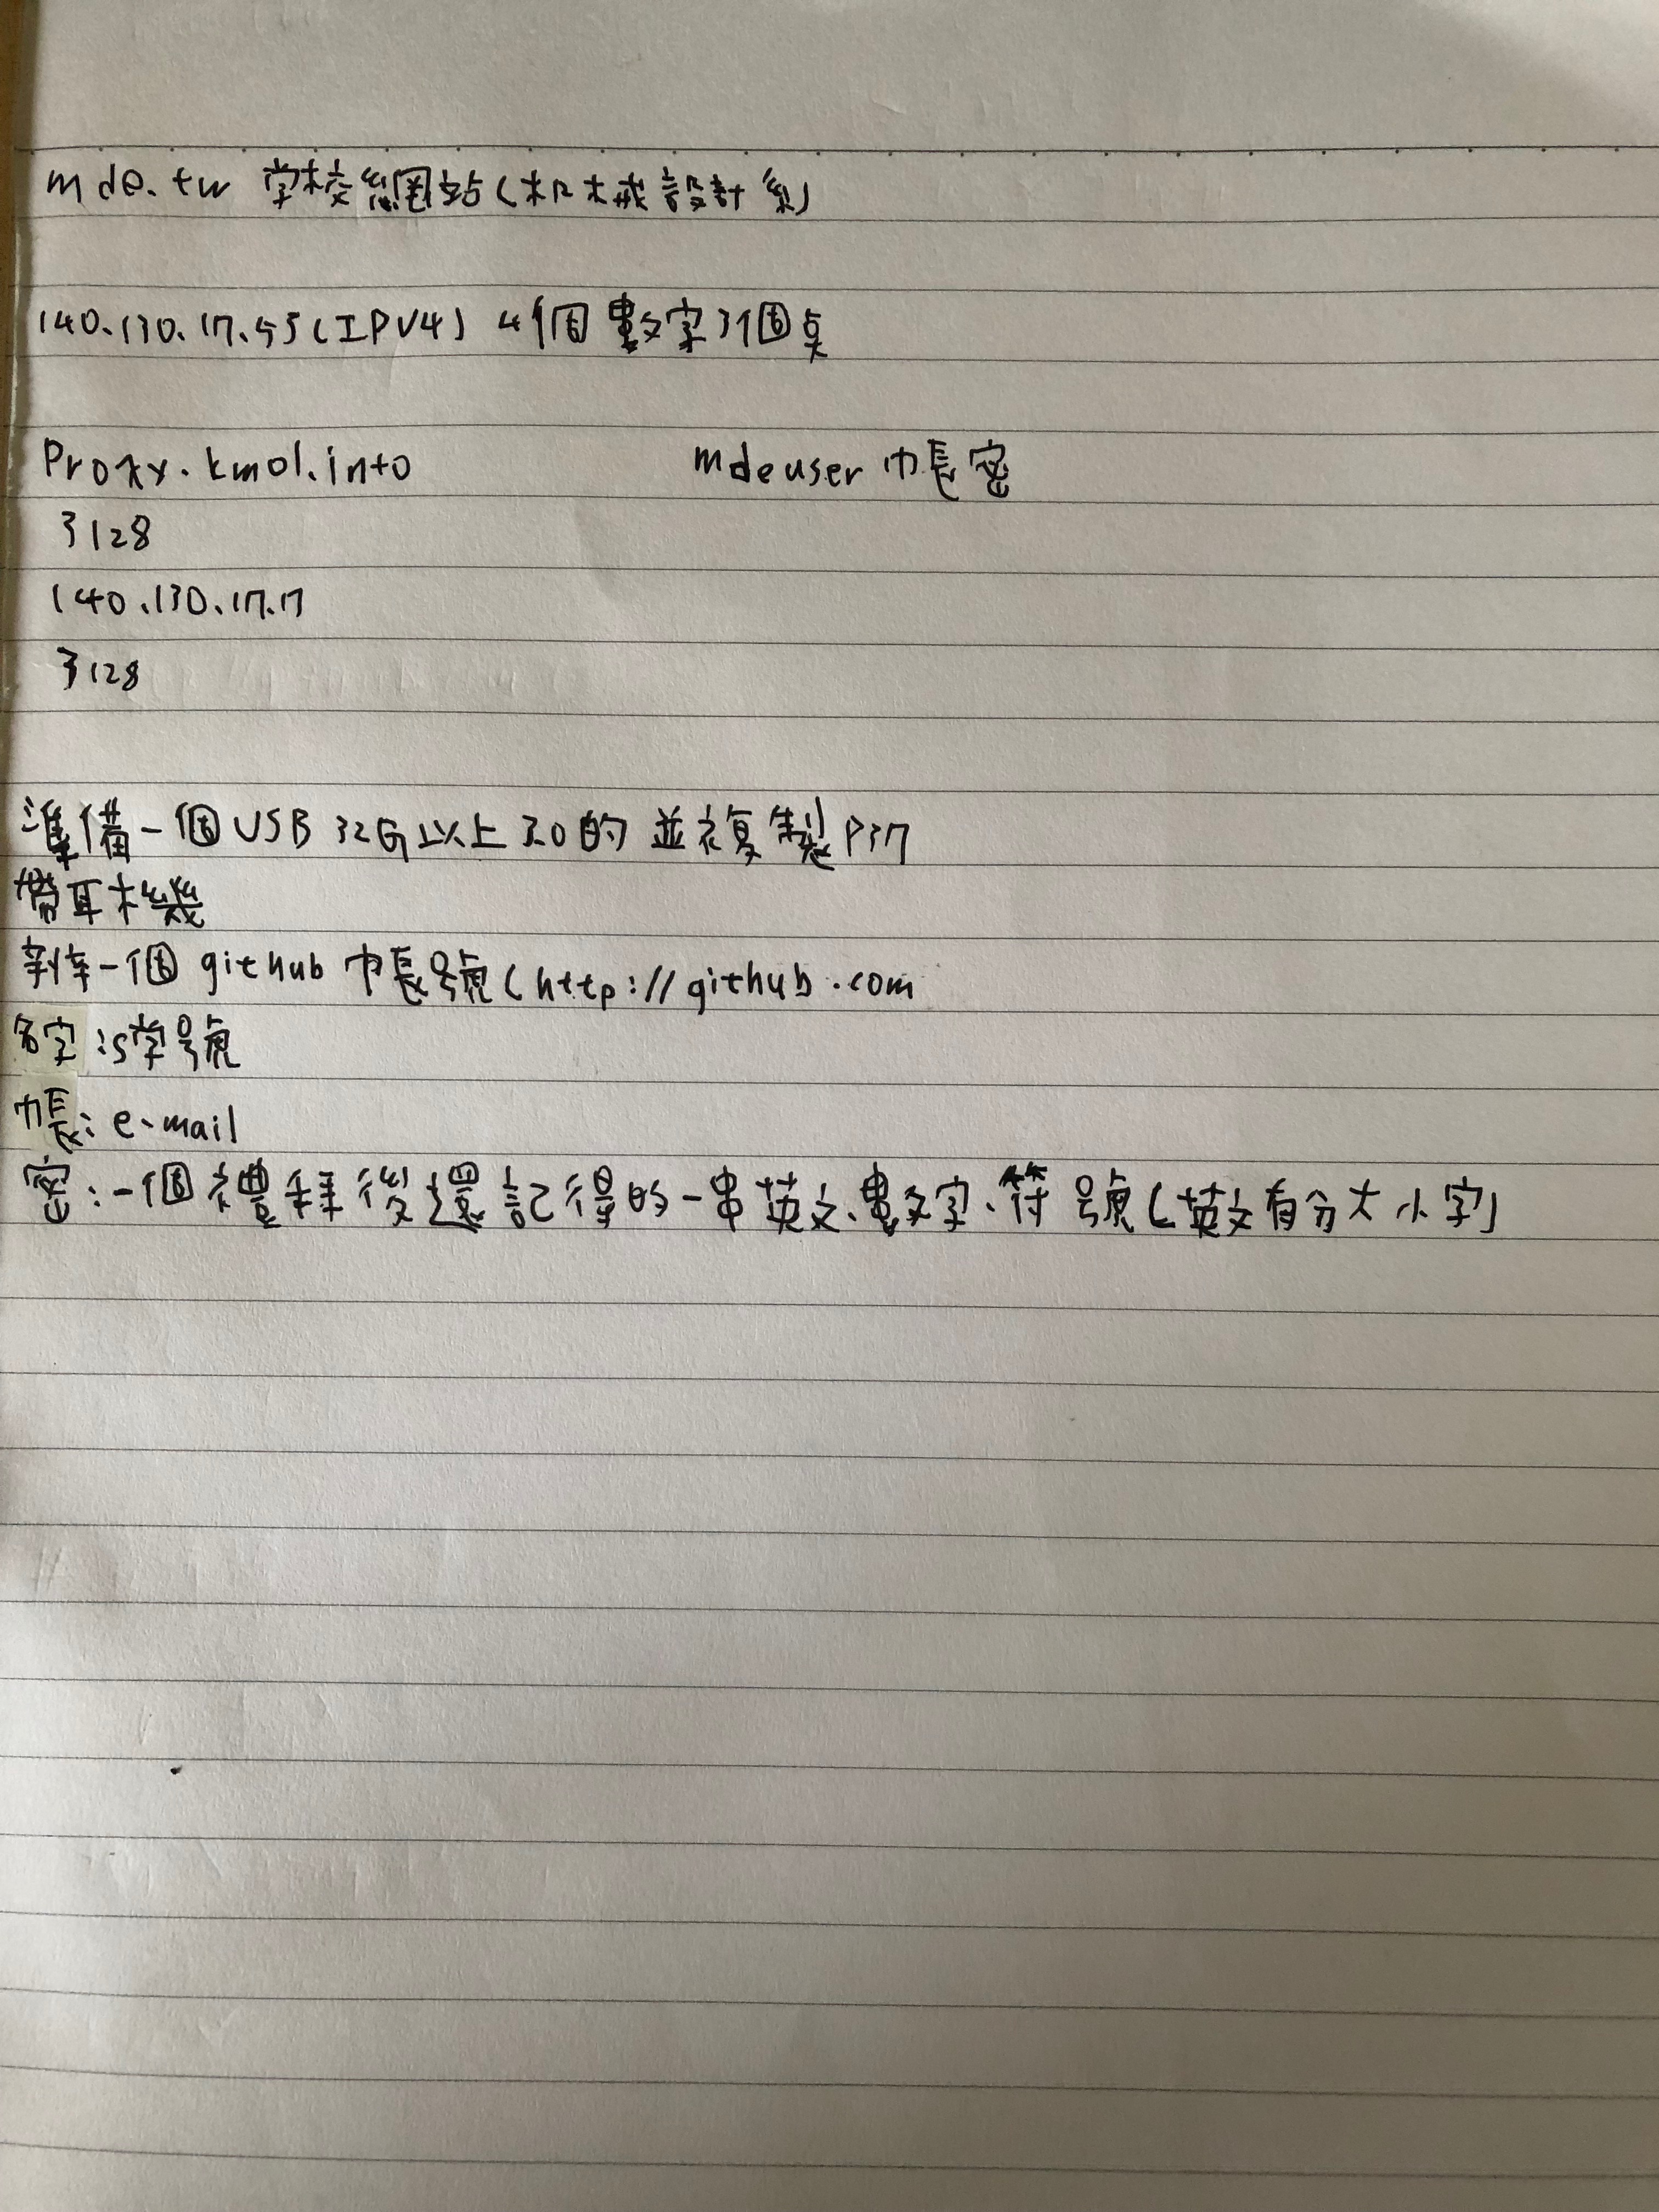 mde.tw 学校網站(机械設計系)
140.130.17.55(IPV4) 4個數字3個点
Proxy.kmol.info mdeuser 帳密
3128
140.130.17.17
3128
準備一個USB 32G以上 3.0的 並複製P37
帶耳機
辦一個 github 帳號(http://github.com
名字:s学號
帳:e-mail
密:一個禮拜後還記得的一串英文、數字、符號(英文有分大小字)